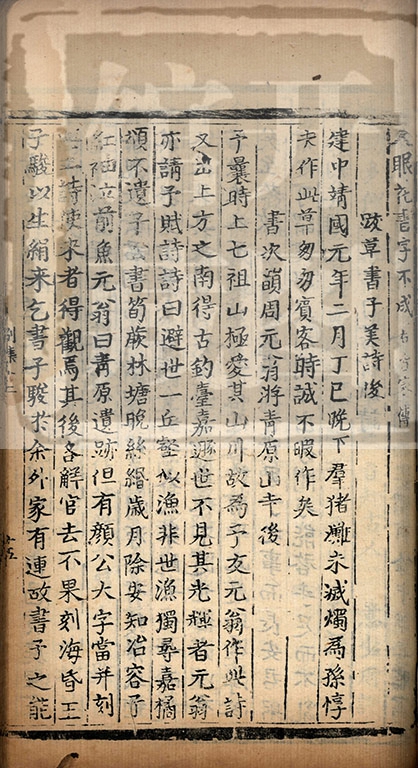 眼花書字不成
跋草書子美詩後
建中靖國元年二月丁巳晚下羣猪灘未滅燭爲孫惇
夫作此草匆匆賓客時誠不暇作矣
書次韻周元翁將青原山寺後
予曩時上七祖山極愛其山川故爲予友元翁作此詩
又出上方之南得古釣臺嘉遯世不見其光輝者元翁
亦請予賦詩詩曰避世一丘壑似漁非世漁獨尋嘉橘
頌不遺子公書筍蕨林塘晚絲緡歲月除安知冶容子
紅袖泣前魚元翁曰青原遺跡但有顏公大字當并刻
二詩使来者得觀焉其後各解官去不果刻海昏王
子駿以生絹来乞書子駿於余外家有連故書予之能